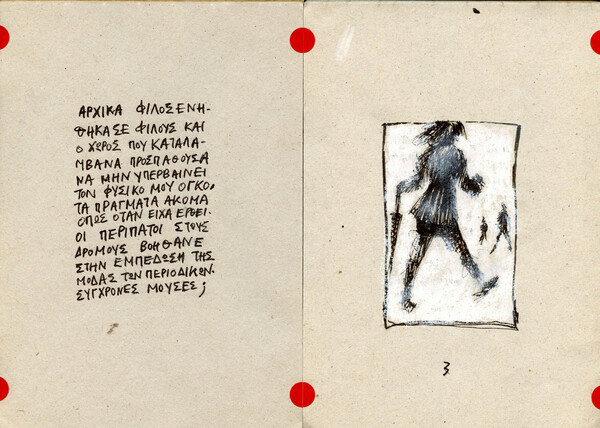 ΑΡΧΙΚΑ ΦΙΛΟΞΕΝΗ-
ΘΗΚΑ ΣΕ ΦΙΛΟΥΣ ΚΑΙ
Ο ΧΩΡΟΣ ΠΟΥ ΚΑΤΑΛΑ-
ΜΒΑΝΑ ΠΡΟΣΠΑΘΟΥΣΑ
ΝΑ ΜΗΝ ΥΠΕΡΒΑΙΝΕΙ
ΤΟΝ ΦΥΣΙΚΟ ΜΟΥ ΟΓΚΟ,
ΤΑ ΠΡΑΓΜΑΤΑ ΑΚΟΜΑ
ΟΠΩΣ ΟΤΑΝ ΕΙΧΑ ΕΡΘΕΙ.
ΟΙ ΠΕΡΙΠΑΤΟΙ ΣΤΟΥΣ
ΔΡΟΜΟΥΣ ΒΟΗΘΑΝΕ
ΣΤΗΝ ΕΜΠΕΔΩΣΗ ΤΗΣ
ΜΟΔΑΣ ΤΩΝ ΠΕΡΙΟΔΙΚΩΝ.
ΣΥΓΧΡΟΝΕΣ ΜΟΥΣΕΣ;
3